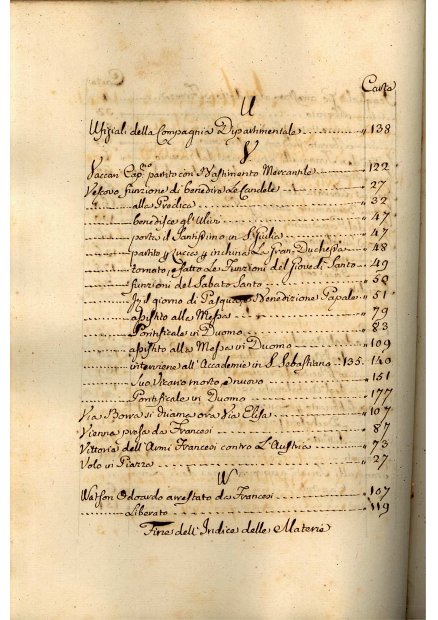 Carta
U
Ufiziali della Compagnia Dipartimentale 138
V
Vaccari Cap.no partito con Bastimento Mercantile 122
Vescovo funzione di benedire Le Candele 27
alla Predica 32
benedisce gl'Ulivi 47
porta il Santissimo in S. Giulia 47
partito p Lucca p inchinar La Gran-Duchessa 48
tornato, e fatto Le Funzioni del Giovedì Santo 49
funzioni del Sabato Santo 50
In il giorno di Pasqua Benedizione Papale 51
assistito alla Messa 79
Pontificale in Duomo 83
assistito alla Messa in Duomo 109
interviene all'Accademie in S. Sebastiano 135. 140
Suo Vicario morto e nuovo 151
Pontificale in Duomo 177
Via Borra si chiama ora Via Elisa 107
Vienna presa da Francesi 87
Vittoria dell'Armi Francesi contro L'Austria 73
Volo in Piazza 27
W
Watson Odoardo arrestato da Francesi 107
Liberato 119
Fine dell'Indice delle Materie